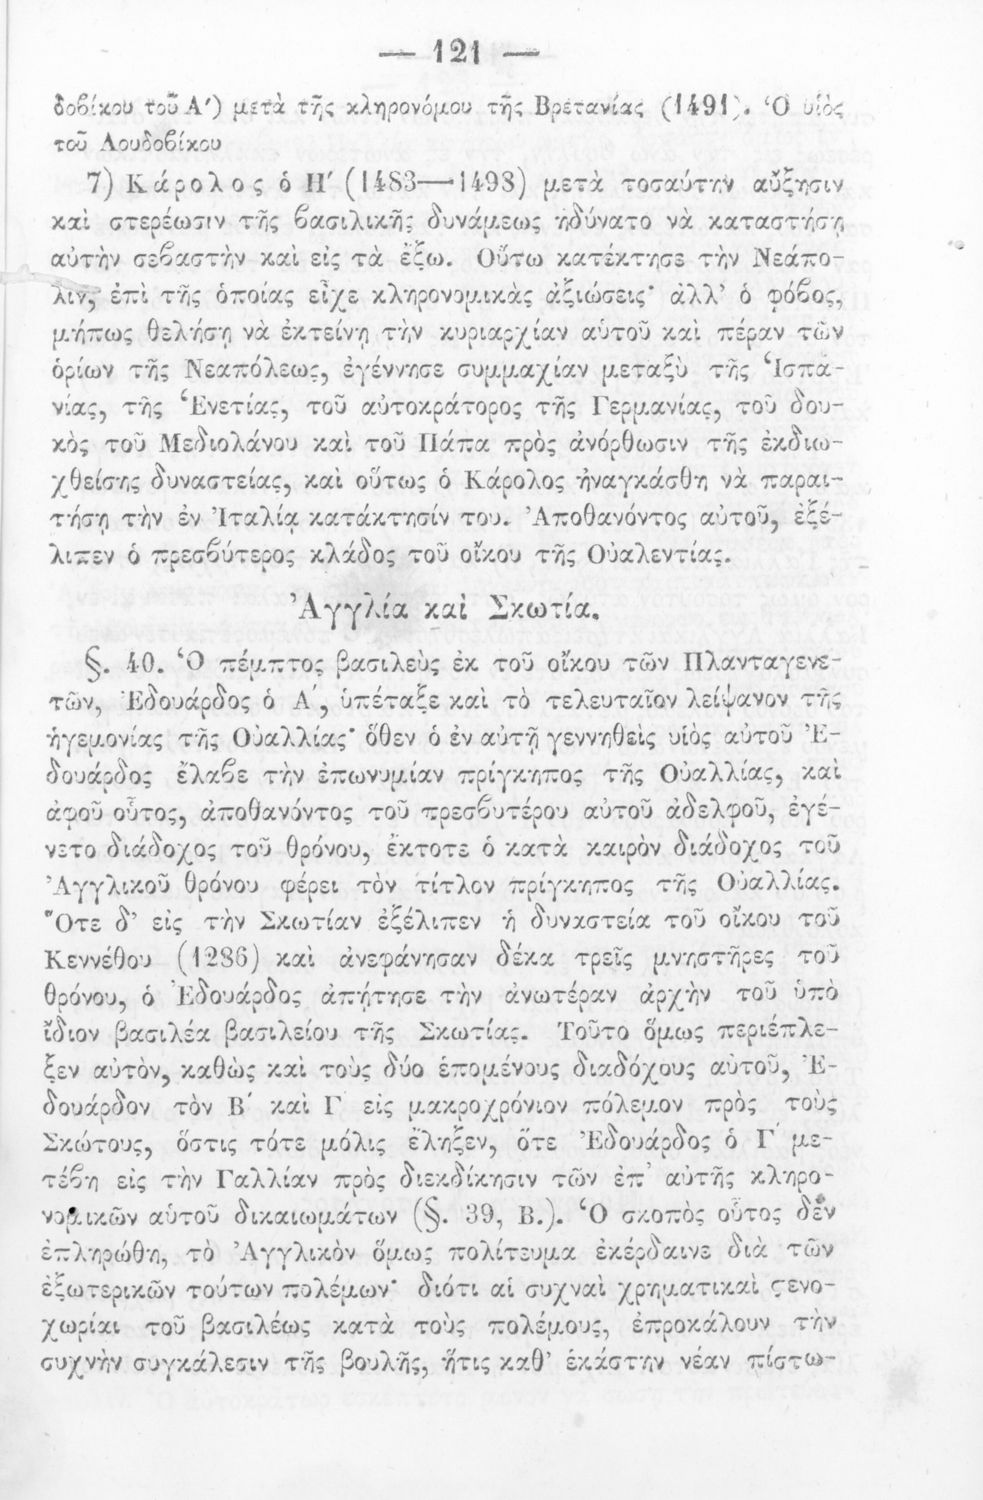 — 121 —
δοβίκου τοῦ Α') μετὰ τῆς κληρονόμου τῆς Βρετανίας (1491). Ὁ υἱὸς
τοῦ Λουδοβίκου
7) Κάρολος ὁ Η' (1483—1498) μετὰ τοσαύτην αὔξησιν
καὶ στερέωσιν τῆς βασιλικῆς δυνάμεως ἠδύνατο νὰ καταστήσῃ
αὐτὴν σεβαστὴν καὶ εἰς τὰ ἔξω. Οὕτω κατέκτησε τὴν Νεάπο-
λιν, ἐπὶ τῆς ὁποίας εἶχε κληρονομικὰς ἀξιώσεις· ἀλλ' ὁ φόβος,
μήπως θελήσῃ νὰ ἐκτείνῃ τὴν κυριαρχίαν αὑτοῦ καὶ πέραν τῶν
ὁρίων τῆς Νεαπόλεως, ἐγέννησε συμμαχίαν μεταξὺ τῆς Ἱσπα-
νίας, τῆς Ἑνετίας, τοῦ αὐτοκράτορος τῆς Γερμανίας, τοῦ δου-
κὸς τοῦ Μεδιολάνου καὶ τοῦ Πάπα πρὸς ἀνόρθωσιν τῆς ἐκδιω-
χθείσης δυναστείας, καὶ οὕτως ὁ Κάρολος ἠναγκάσθη νὰ παραι-
τήσῃ τὴν ἐν Ἰταλίᾳ κατάκτησίν του. Ἀποθανόντος αὐτοῦ, ἐξέ-
λιπεν ὁ πρεσβύτερος κλάδος τοῦ οἴκου τῆς Οὐαλεντίας.
Ἀγγλία καὶ Σκωτία.
§. 40. Ὁ πέμπτος βασιλεὺς ἐκ τοῦ οἴκου τῶν Πλανταγενε-
τῶν, Ἐδουάρδος ὁ Α', ὑπέταξε καὶ τὸ τελευταῖον λείψανον τῆς
ἡγεμονίας τῆς Οὐαλλίας· ὅθεν ὁ ἐν αὐτῇ γεννηθεὶς υἱὸς αὐτοῦ Ἐ-
δουάρδος ἔλαβε τὴν ἐπωνυμίαν πρίγκηπος τῆς Οὐαλλίας, καὶ
ἀφοῦ οὗτος, ἀποθανόντος τοῦ πρεσβυτέρου αὐτοῦ ἀδελφοῦ, ἐγέ-
νετο διάδοχος τοῦ θρόνου, ἔκτοτε ὁ κατὰ καιρὸν διάδοχος τοῦ
Ἀγγλικοῦ θρόνου φέρει τὸν τίτλον πρίγκηπος τῆς Οὐαλλίας.
Ὅτε δ' εἰς τὴν Σκωτίαν ἐξέλιπεν ἡ δυναστεία τοῦ οἴκου τοῦ
Κεννέθου (1286) καὶ ἀνεφάνησαν δέκα τρεῖς μνηστῆρες τοῦ
θρόνου, ὁ Ἐδουάρδος ἀπῄτησε τὴν ἀνωτέραν ἀρχὴν τοῦ ὑπὸ
ἴδιον βασιλέα βασιλείου τῆς Σκωτίας. Τοῦτο ὅμως περιέπλε-
ξεν αὐτὸν, καθὼς καὶ τοὺς δύο ἑπομένους διαδόχους αὐτοῦ, Ἐ-
δουάρδον τὸν Β' καὶ Γ' εἰς μακροχρόνιον πόλεμον πρὸς τοὺς
Σκώτους, ὅστις τότε μόλις ἔληξεν, ὅτε Ἐδουάρδος ὁ Γ' με-
τέβη εἰς τὴν Γαλλίαν πρὸς διεκδίκησιν τῶν ἐπ' αὐτῆς κληρο-
νομικῶν αὑτοῦ δικαιωμάτων (§. 39, Β.). Ὁ σκοπὸς οὗτος δὲν
ἐπληρώθη, τὸ Ἀγγλικὸν ὅμως πολίτευμα ἐκέρδαινε διὰ τῶν
ἐξωτερικῶν τούτων πολέμων· διότι αἱ συχναὶ χρηματικαὶ ϛενο-
χωρίαι τοῦ βασιλέως κατὰ τοὺς πολέμους, ἐπροκάλουν τὴν
συχνὴν συγκάλεσιν τῆς βουλῆς, ἥτις καθ' ἑκάστην νέαν πίστω-